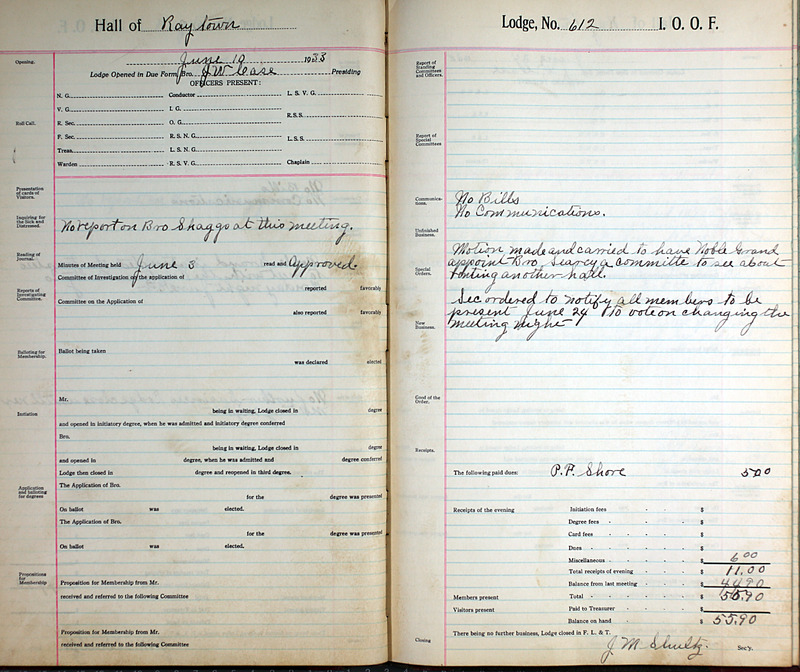 Hall of Raytown
Opening.
June 10 1923
Lodge Opened in Due Form, Bro. J.W. Case Presiding
OFFICERS PRESENT:
Roll Call.
N. G. Conductor L. S. V. G.
V. G. I. G. R.S.S.
R. Sec. O. G.
F. Sec. R. S. N. G. L.S.S.
Treas. L. S. N. G.
Warden R. S. V. G. Chaplain
Presentation
of cards of
Visitors.
Inquiring for
the Sick and
Distressed.
No report on Bro Skaggs at this meeting.
Reading of
Journal.
Minutes of Meeting held June 3 read and Approved.
Committee of Investigation on the application of
Reports of
Investigating
Committee.
reported favorably
Committee on the Application of
also reported favorably
Balloting for
Membership.
Ballot being taken
was declared elected
Mr.
Initiation
being in waiting, Lodge closed in degree
and opened in initiatory degree, when he was admitted and initiatory degree conferred
Bro.
being in waiting, Lodge closed in degree
and opened in degree, when he was admitted and degree conferred
Lodge then closed in degree and reopened in third degree.
Application
and balloting
for degrees
The Application of Bro.
for the degree was presented
On ballot was elected.
The Application of Bro.
for the degree was presented
On ballot was elected.
Propositions
for
Membership
Proposition for Membership from Mr.
received and referred to the following Committee
Proposition for Membership from Mr.
received and referred to the following Committee
Lodge, No. 612 I. O. O. F.
Report of
Standing
Committees
and Officers.
Report of
Special
Committees
Communica-
tions.
No Bills
No Communications.
Unfinished
Business.
Motion made and carried to have Noble Grand
appoint Bro Searcy a committe to see about
renting another hall.
Special
Orders.
Sec ordered to notify all members to be
present June 24 to vote on changing the
meeting night
New
Business.
Good of the
Order.
Receipts.
The following paid dues: P.P. Shore 500
Receipts of the evening Initiation fees $
Degree fees $
Card fees $
Dues $
Miscellaneous $ 6 00
Total receipts of evening $ 11.00
Balance from last meeting $ 44 90
Members present Total $ 55.90
Visitors present Paid to Treasurer $
Balance on hand $ 55.90
There being no further business, Lodge closed in F. L. & T.
Closing J M Shultz. Sec'y.